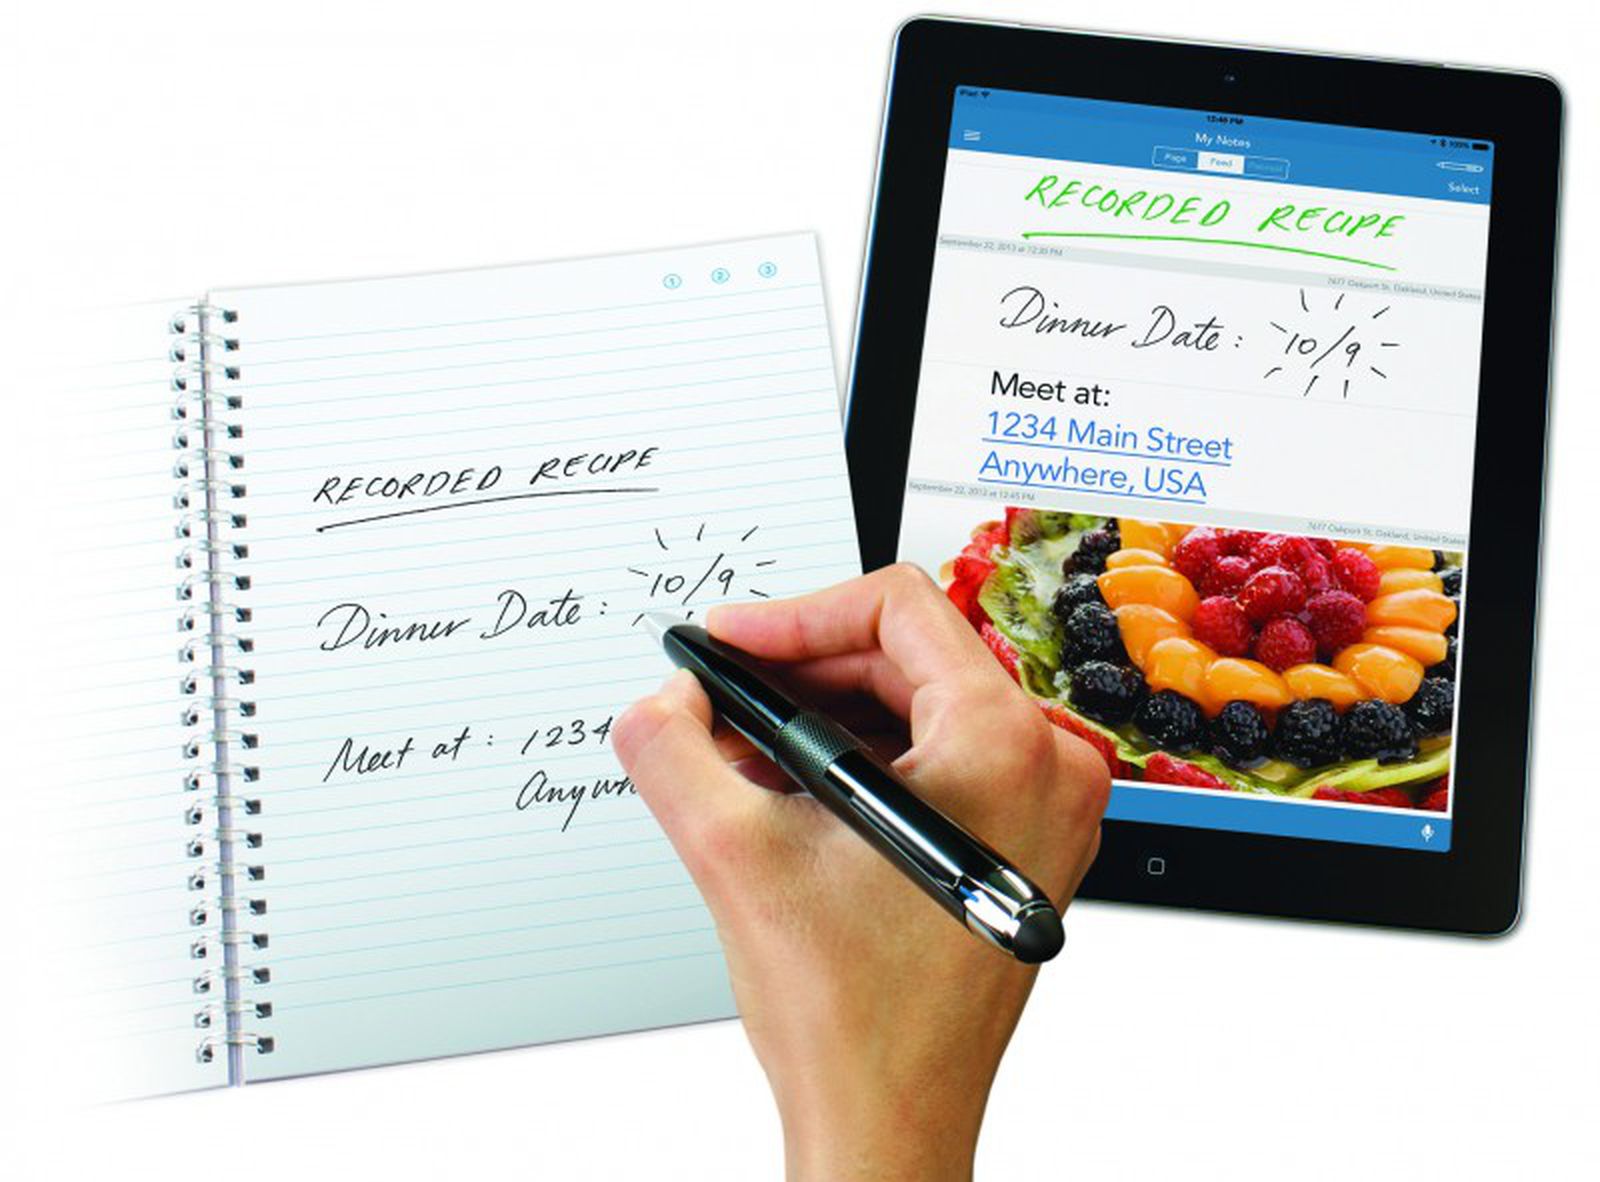 1 2 3
RECORDED RECIPE
Dinner Date: 10/9
Meet at: 1234
Anywh
iPad
12:46 PM
100%
My Notes
Page Feed
Select
RECORDED RECIPE
September 22, 2013 at 12:30 PM
7677 Oakport St, Oakland, United States
Dinner Date: 10/9
Meet at:
1234 Main Street
Anywhere, USA
September 22, 2013 at 12:45 PM
7677 Oakport St, Oakland, United States